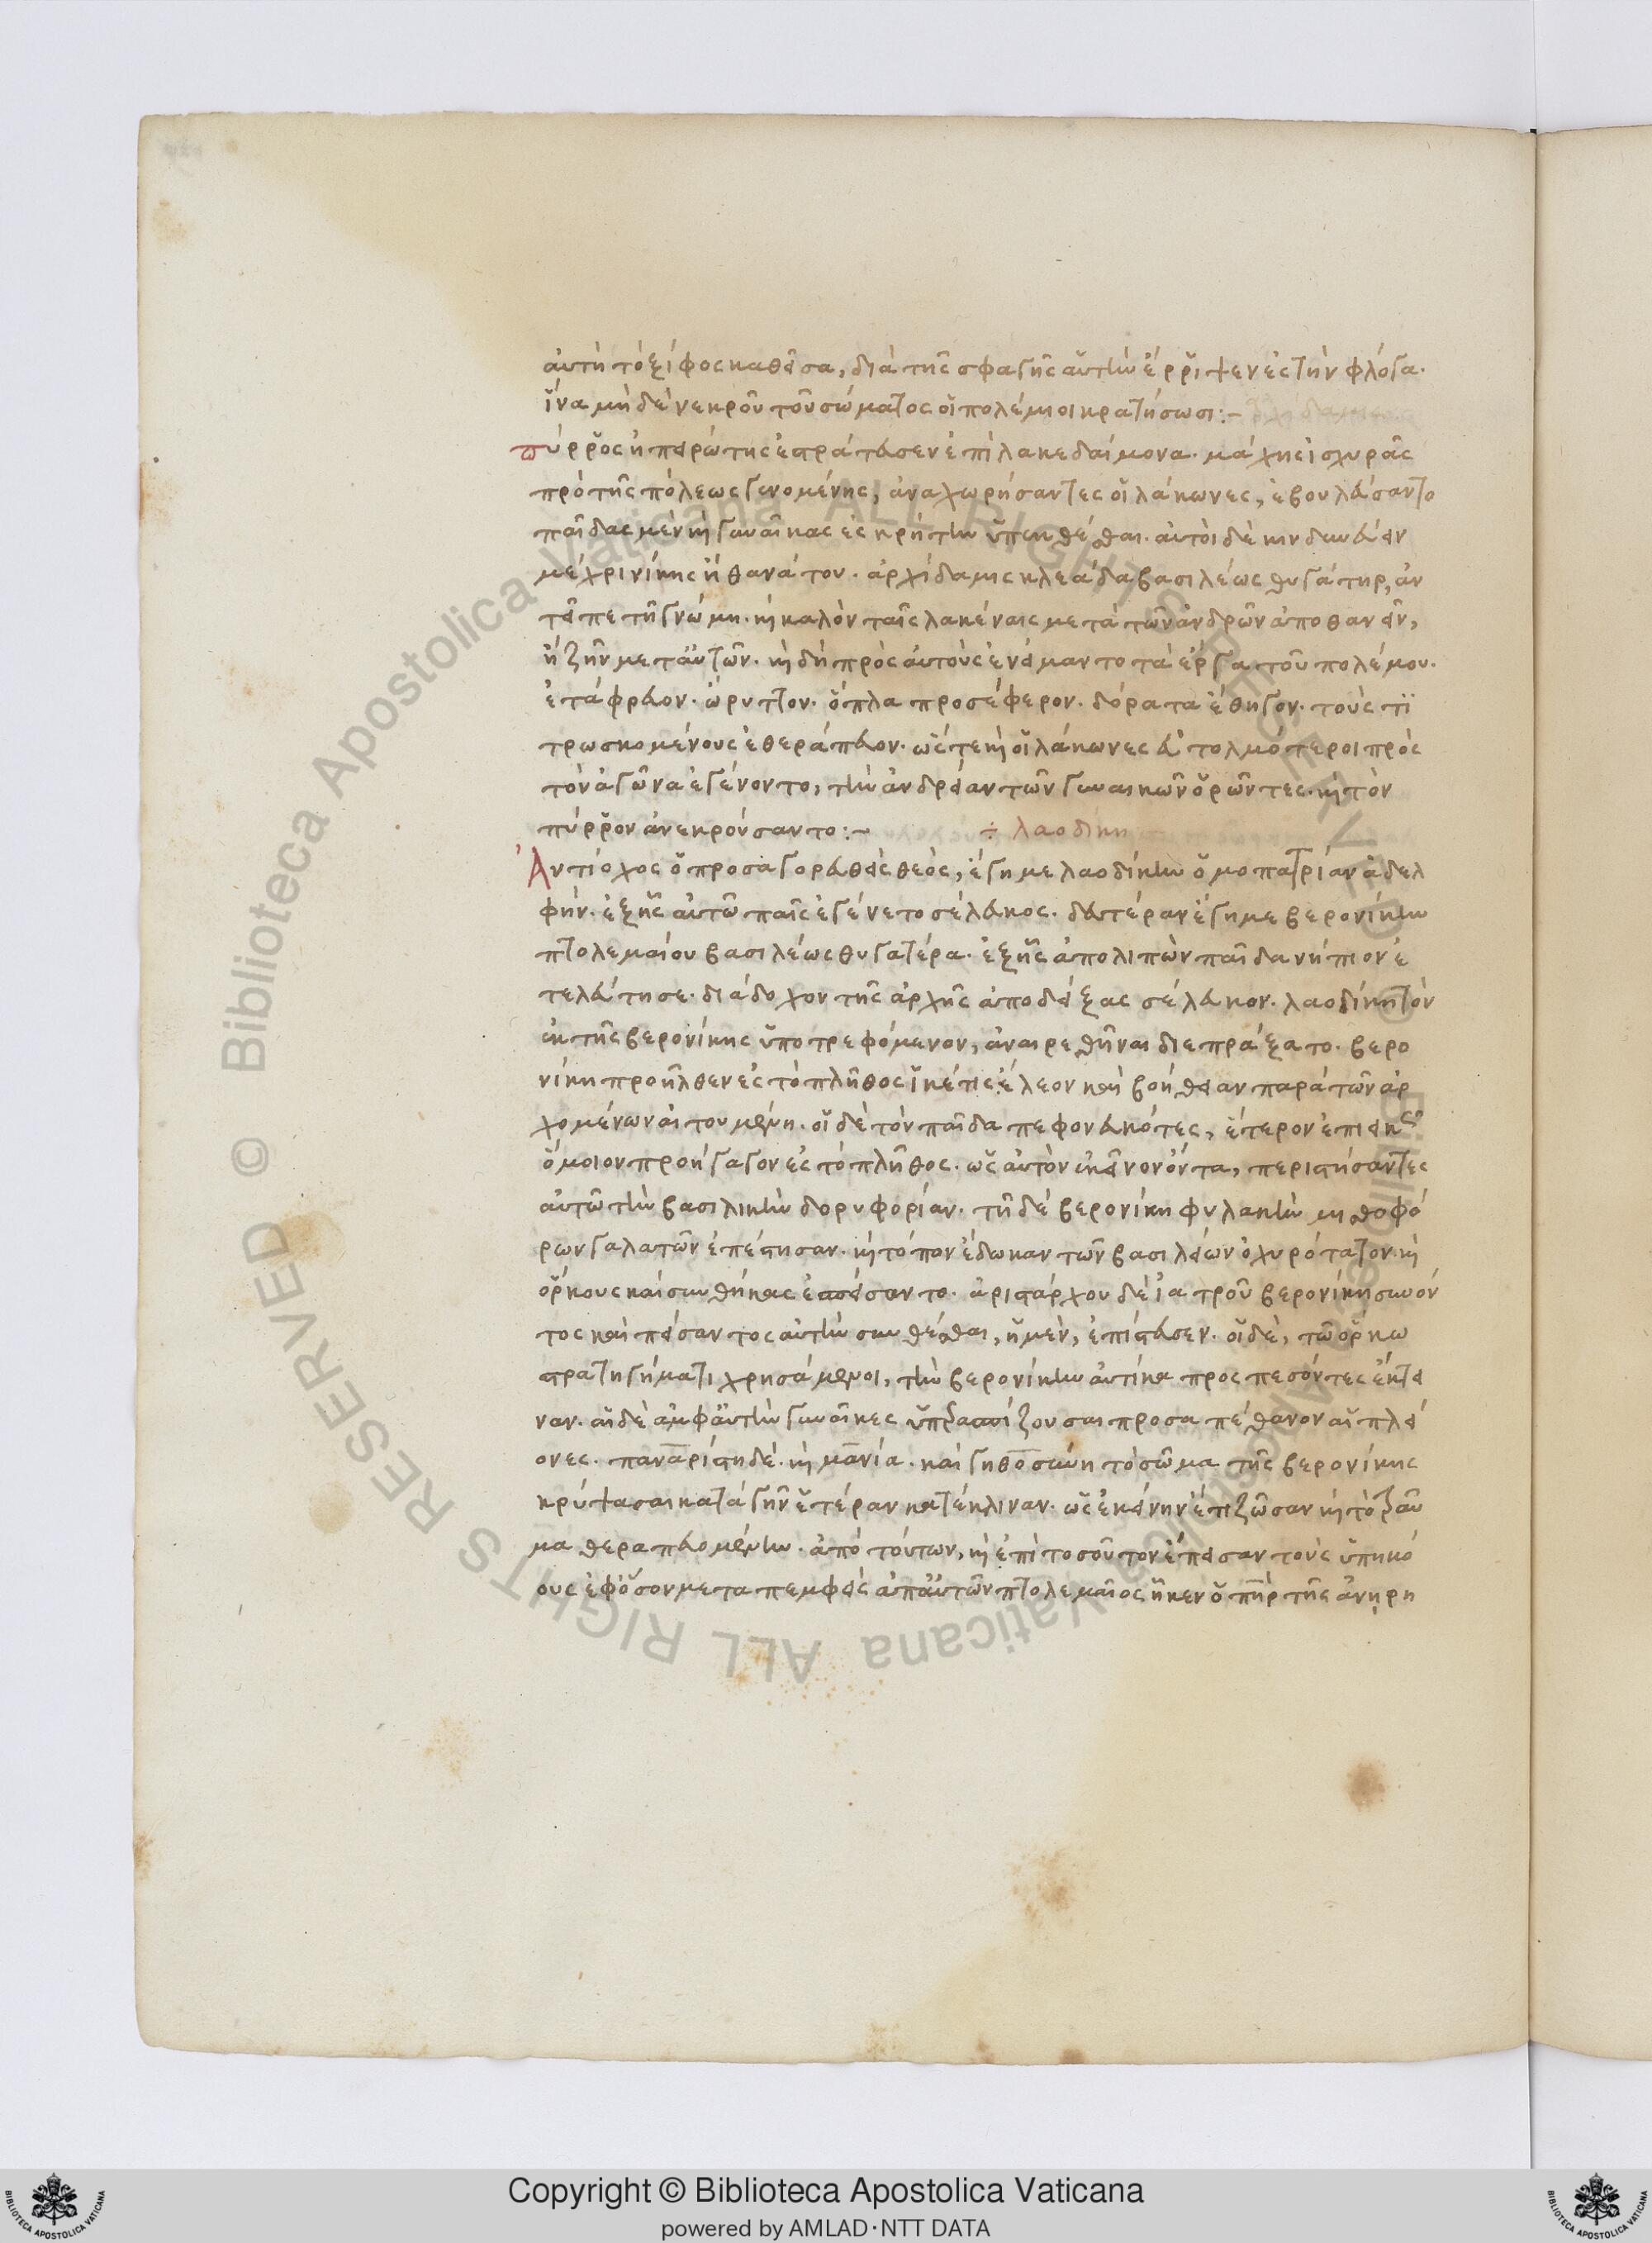 αὐτὴ τὸ ξίφος καθεῖσα, διὰ τῆς σφαγῆς αὑτὴν ἔρριψεν ἐς τὴν φλόγα.
ἵνα μὴ δὲ νεκροῦ τοῦ σώματος οἱ πολέμιοι κρατήσωσι:-
πύρρος ἠπειρώτης ἐστράτευσεν ἐπὶ λακεδαίμονα. μάχης ἰσχυρᾶς
πρὸ τῆς πόλεως γενομένης, ἀναχωρήσαντες οἱ λάκωνες, ἐβουλεύσαντο
παῖδας μὲν καὶ γυναῖκας ἐς κρήτην ὑπεκθέσθαι. αὐτοὶ δὲ κινδυνεύειν
μέχρι νίκης ἢ θανάτου. ἀρχίδαμις κλεάδα βασιλέως θυγάτηρ, ἀν
τεῖπε τῇ γνώμῃ. καὶ καλὸν ταῖς λακέναις μετὰ τῶν ἀνδρῶν ἀποθανεῖν,
ἢ ζῆν μετ' αὐτῶν. καὶ δὴ πρὸς αὐτοὺς ἐνείμαντο τὰ ἔργα τοῦ πολέμου.
ἐτάφρευον. ὤρυττον. ὅπλα προσέφερον. δόρατα ἔθηγον. τοὺς τι
τρωσκομένους ἐθεράπευον. ὥστε καὶ οἱ λάκωνες εὐτολμότεροι πρὸς
τὸν ἀγῶνα ἐγένοντο, τὴν ἀνδρείαν τῶν γυναικῶν ὁρῶντες. καὶ τὸν
πύρρον ἀνεκρούσαντο:- ÷ λαοδικη
Ἀντίοχος ὁ προσαγορευθεὶς θεὸς, ἔγημε λαοδίκην ὁμοπατρίαν ἀδελ
φήν. ἐξ ἧς αὐτῶ παῖς ἐγένετο σέλευκος. δευτέραν ἔγημε βερονίκην
πτολεμαίου βασιλέως θυγατέρα. ἐξ ἧς ἀπολιπὼν παῖδα νήπιον ἐ
τελεύτησε. διάδοχον τῆς ἀρχῆς ἀποδείξας σέλευκον. λαοδίκη τὸν
ἐκ τῆς βερονίκης ὑποτρεφόμενον, ἀναιρεθῆναι διεπράξατο. βερο
νίκη προῆλθεν ἐς τὸ πλῆθος ἱκέτις ἔλεον καὶ βοήθειαν παρὰ τῶν ἀρ
χομένων αἰτουμένη. οἱ δὲ τὸν παῖδα πεφονευκότες, ἕτερον ἐπιεικῶς
ὅμοιον προήγαγον ἐς τὸ πλῆθος. ὡς αὐτὸν ἐκεῖνον ὄντα, περιστήσαντες
αὐτῶ τὴν βασιλικὴν δορυφορίαν. τῇ δὲ βερονίκη φυλακὴν μισθοφό
ρων γαλατῶν ἐπέστησαν. καὶ τόπον ἔδωκαν τῶν βασιλείων ὀχυρότατον. καὶ
ὅρκους καὶ συνθήκας ἐσπείσαντο. ἀριστάρχου δὲ ἰατροῦ βερονίκη συνόν
τος καὶ πείσαντος αὐτὴν συνθέσθαι, ἡ μὲν, ἐπίστευσεν. οἱ δὲ, τῶ ὅρκω
στρατηγήματι χρησάμενοι, τὴν βερονίκην αὐτίκα προσπεσόντες ἔκτει
ναν. αἱ δὲ ἀμφ' αὐτὴν γυναῖκες ὑπερασπίζουσαι προσαπέθανον αἱ πλεί
ονες. παναρίστη δὲ. καὶ μανία. καὶ γηθοσύνη τὸ σῶμα τῆς βερονίκης
κρύψασαι κατὰ γῆν ἑτέραν κατέκλιναν. ὡς ἐκείνην ἔτι ζῶσαν καὶ τὸ τραῦ
μα θεραπευομένην. ἀπὸ τούτων, καὶ ἐπὶ τοσοῦτον ἔπεισαν τοὺς ὑπηκό
ους ἐφ' ὅσον μεταπεμφθεὶς ἀπ' αὐτῶν πτολεμαῖος ἧκεν ὁ πὴρ τῆς ἀνῃρη
Copyright © Biblioteca Apostolica Vaticana
powered by AMLAD·NTT DATA